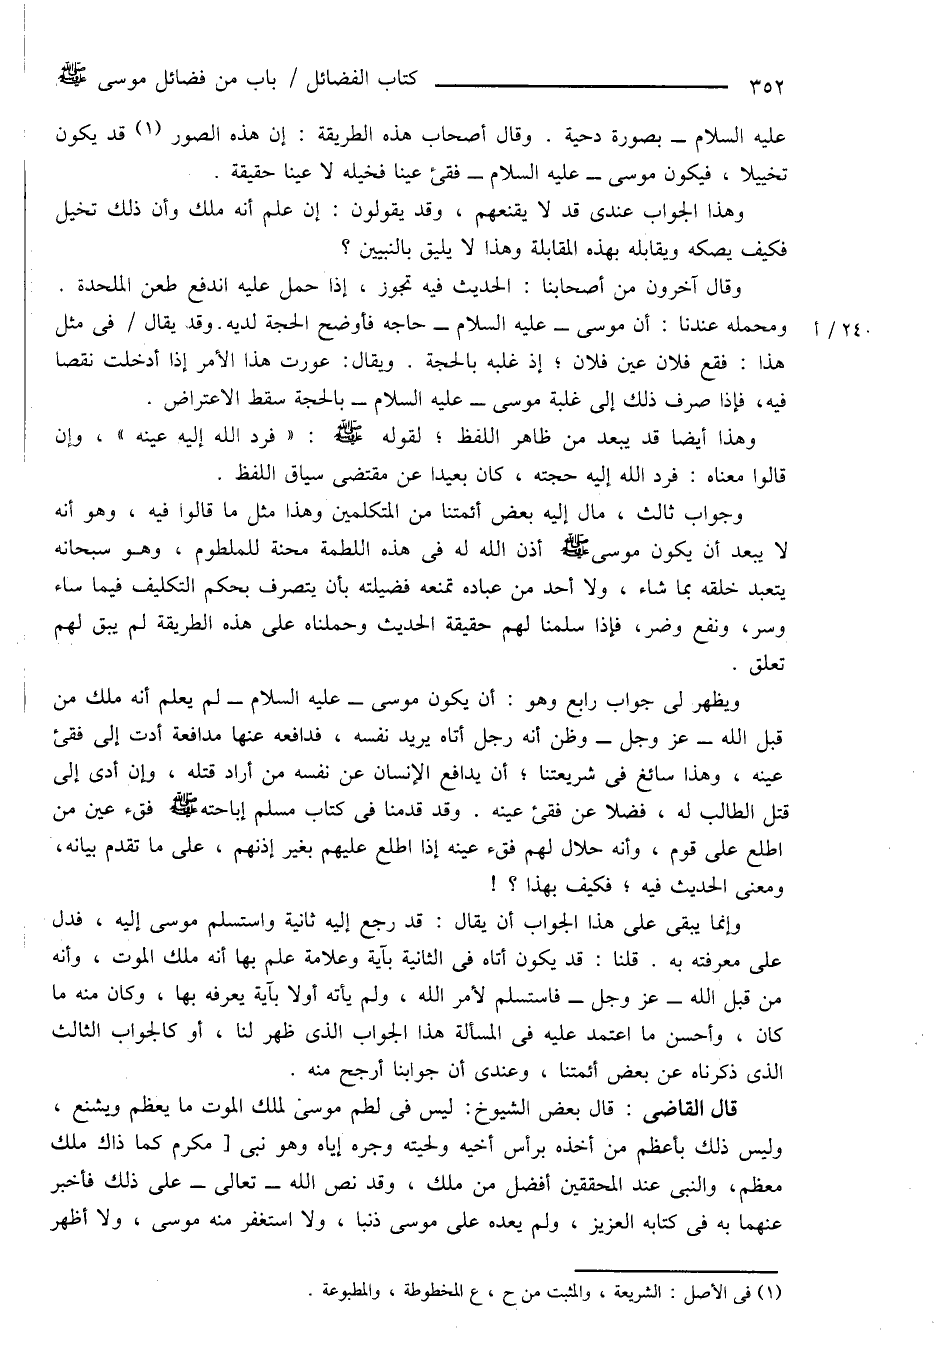 ٣٥٢ كتاب الفضائل / باب من فضائل موسى ﷺ
عليه السلام ــ بصورة دحية . وقال أصحاب هذه الطريقة : إن هذه الصور (١) قد يكون
تخييلا ، فيكون موسى ــ عليه السلام ــ فقئ عينا فخيله لا عينا حقيقة .
وهذا الجواب عندى قد لا يقنعهم ، وقد يقولون : إن علم أنه ملك وأن ذلك تخيل
فكيف يصكه ويقابله بهذه المقابلة وهذا لا يليق بالنبيين ؟
وقال آخرون من أصحابنا : الحديث فيه تجوز ، إذا حمل عليه اندفع طعن الملحدة .
ومحمله عندنا : أن موسى ــ عليه السلام ــ حاجه فأوضح الحجة لديه. وقد يقال / فى مثل ٢٤٠ / أ
هذا : فقع فلان عين فلان ؛ إذ غلبه بالحجة . ويقال: عورت هذا الأمر إذا أدخلت نقصا
فيه، فإذا صرف ذلك إلى غلبة موسى ــ عليه السلام ــ بالحجة سقط الاعتراض .
وهذا أيضا قد يبعد من ظاهر اللفظ ؛ لقوله ﷺ : « فرد الله إليه عينه » ، وإن
قالوا معناه : فرد الله إليه حجته ، كان بعيدا عن مقتضى سياق اللفظ .
وجواب ثالث ، مال إليه بعض أئمتنا من المتكلمين وهذا مثل ما قالوا فيه ، وهو أنه
لا يبعد أن يكون موسى ﷺ أذن الله له فى هذه اللطمة محنة للملطوم ، وهـو سبحانه
يتعبد خلقه بما شاء ، ولا أحد من عباده تمنعه فضيلته بأن يتصرف بحكم التكليف فيما ساء
وسر، ونفع وضر، فإذا سلمنا لهم حقيقة الحديث وحملناه على هذه الطريقة لم يبق لهم
تعلق .
ويظهر لى جواب رابع وهو : أن يكون موسى ــ عليه السلام ــ لم يعلم أنه ملك من
قبل الله ــ عز وجل ــ وظن أنه رجل أتاه يريد نفسه ، فدافعه عنها مدافعة أدت إلى فقئ
عينه ، وهذا سائغ فى شريعتنا ؛ أن يدافع الإنسان عن نفسه من أراد قتله ، وإن أدى إلى
قتل الطالب له ، فضلا عن فقئ عينه . وقد قدمنا فى كتاب مسلم إباحته ﷺ فقء عين من
اطلع على قوم ، وأنه حلال لهم فقء عينه إذا اطلع عليهم بغير إذنهم ، على ما تقدم بيانه،
ومعنى الحديث فيه ؛ فكيف بهذا ؟ !
وإنما يبقى على هذا الجواب أن يقال : قد رجع إليه ثانية واستسلم موسى إليه ، فدل
على معرفته به . قلنا : قد يكون أتاه فى الثانية بآية وعلامة علم بها أنه ملك الموت ، وأنه
من قبل الله ــ عز وجل ــ فاستسلم لأمر الله ، ولم يأته أولا بآية يعرفه بها ، وكان منه ما
كان ، وأحسن ما اعتمد عليه فى المسألة هذا الجواب الذى ظهر لنا ، أو كالجواب الثالث
الذى ذكرناه عن بعض أئمتنا ، وعندى أن جوابنا أرجح منه .
قال القاضى : قال بعض الشيوخ: ليس فى لطم موسىٰ لملك الموت ما يعظم ويشنع ،
وليس ذلك بأعظم من أخذه برأس أخيه ولحيته وجره إياه وهو نبى [ مكرم كما ذاك ملك
معظم، والنبى عند المحققين أفضل من ملك ، وقد نص الله ــ تعالى ــ على ذلك فأخبر
عنهما به فى كتابه العزيز ، ولم يعده على موسى ذنبا ، ولا استغفر منه موسى ، ولا أظهر
(١) فى الأصل : الشريعة ، والمثبت من ح ، ع المخطوطة ، والمطبوعة .